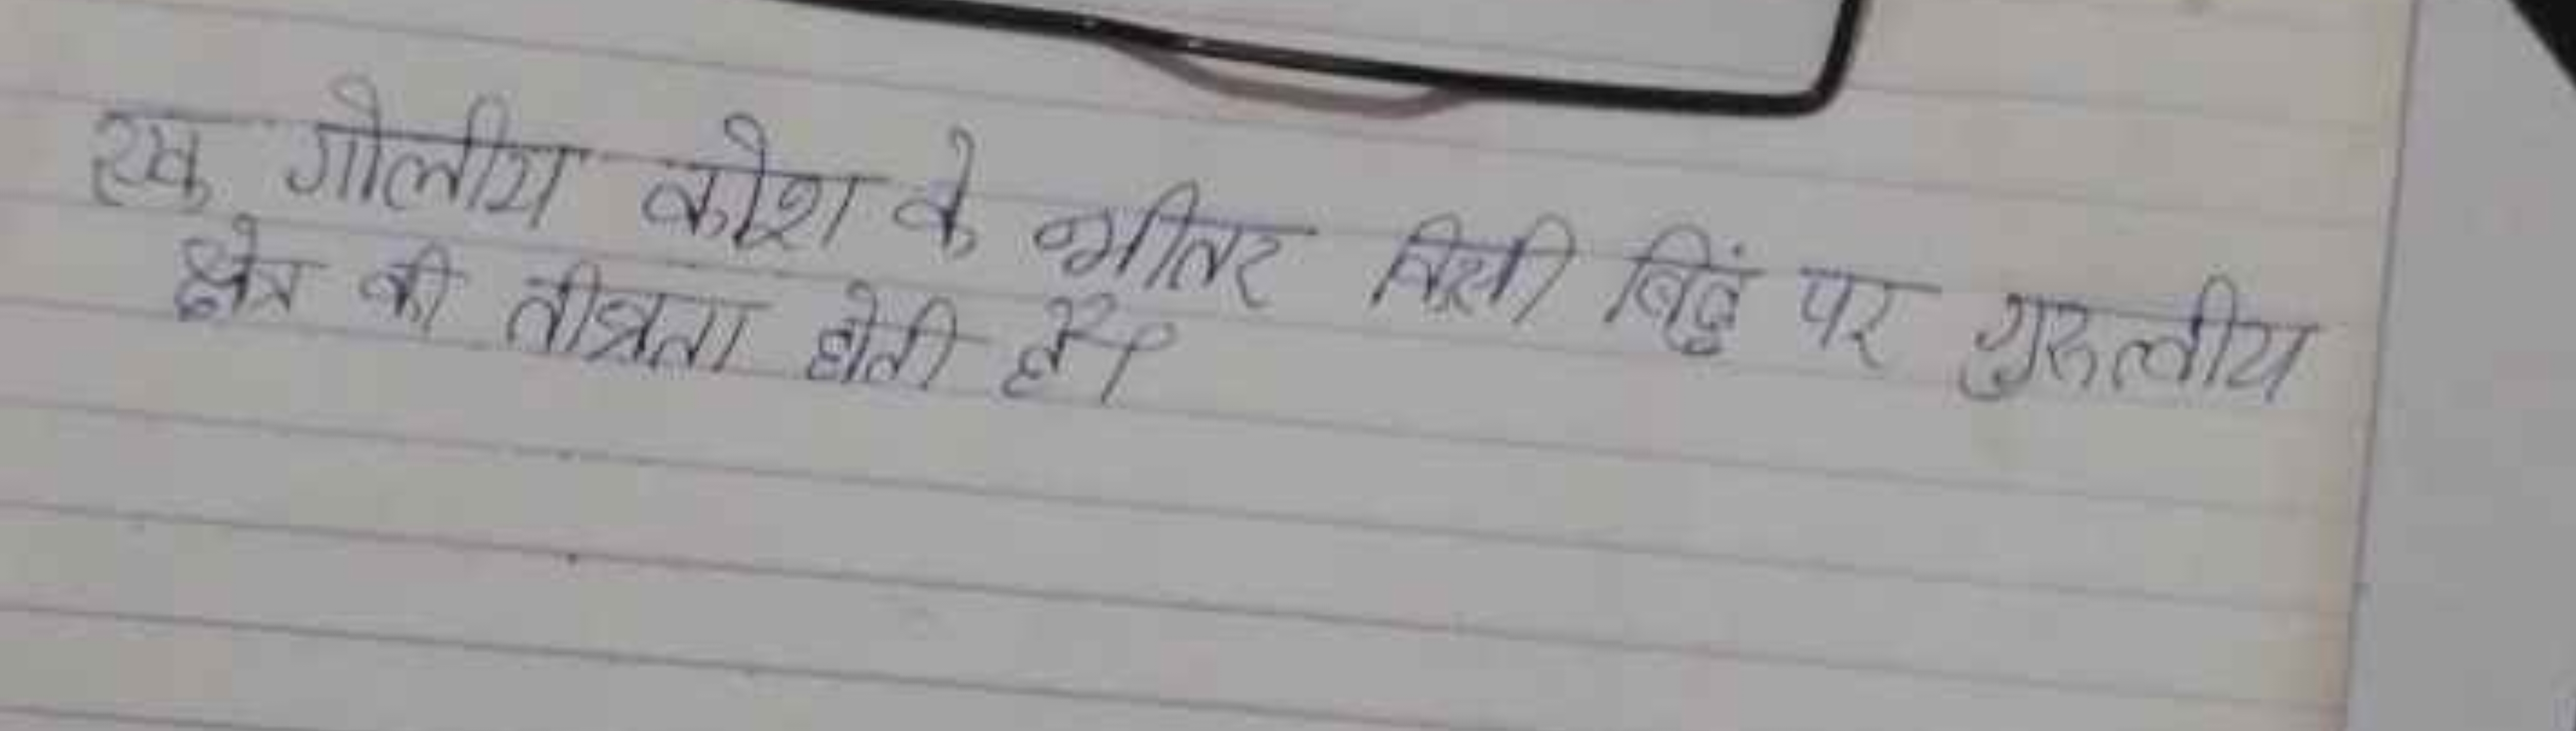 एक गोलीय कोश के भीतर किसी बिंदुं पर गुरुत्वीय
क्षेत्र की तीव्रता होती हैं।